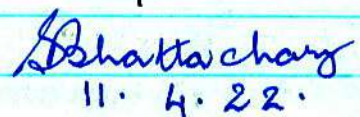 SBhattachary
11. 4. 22.